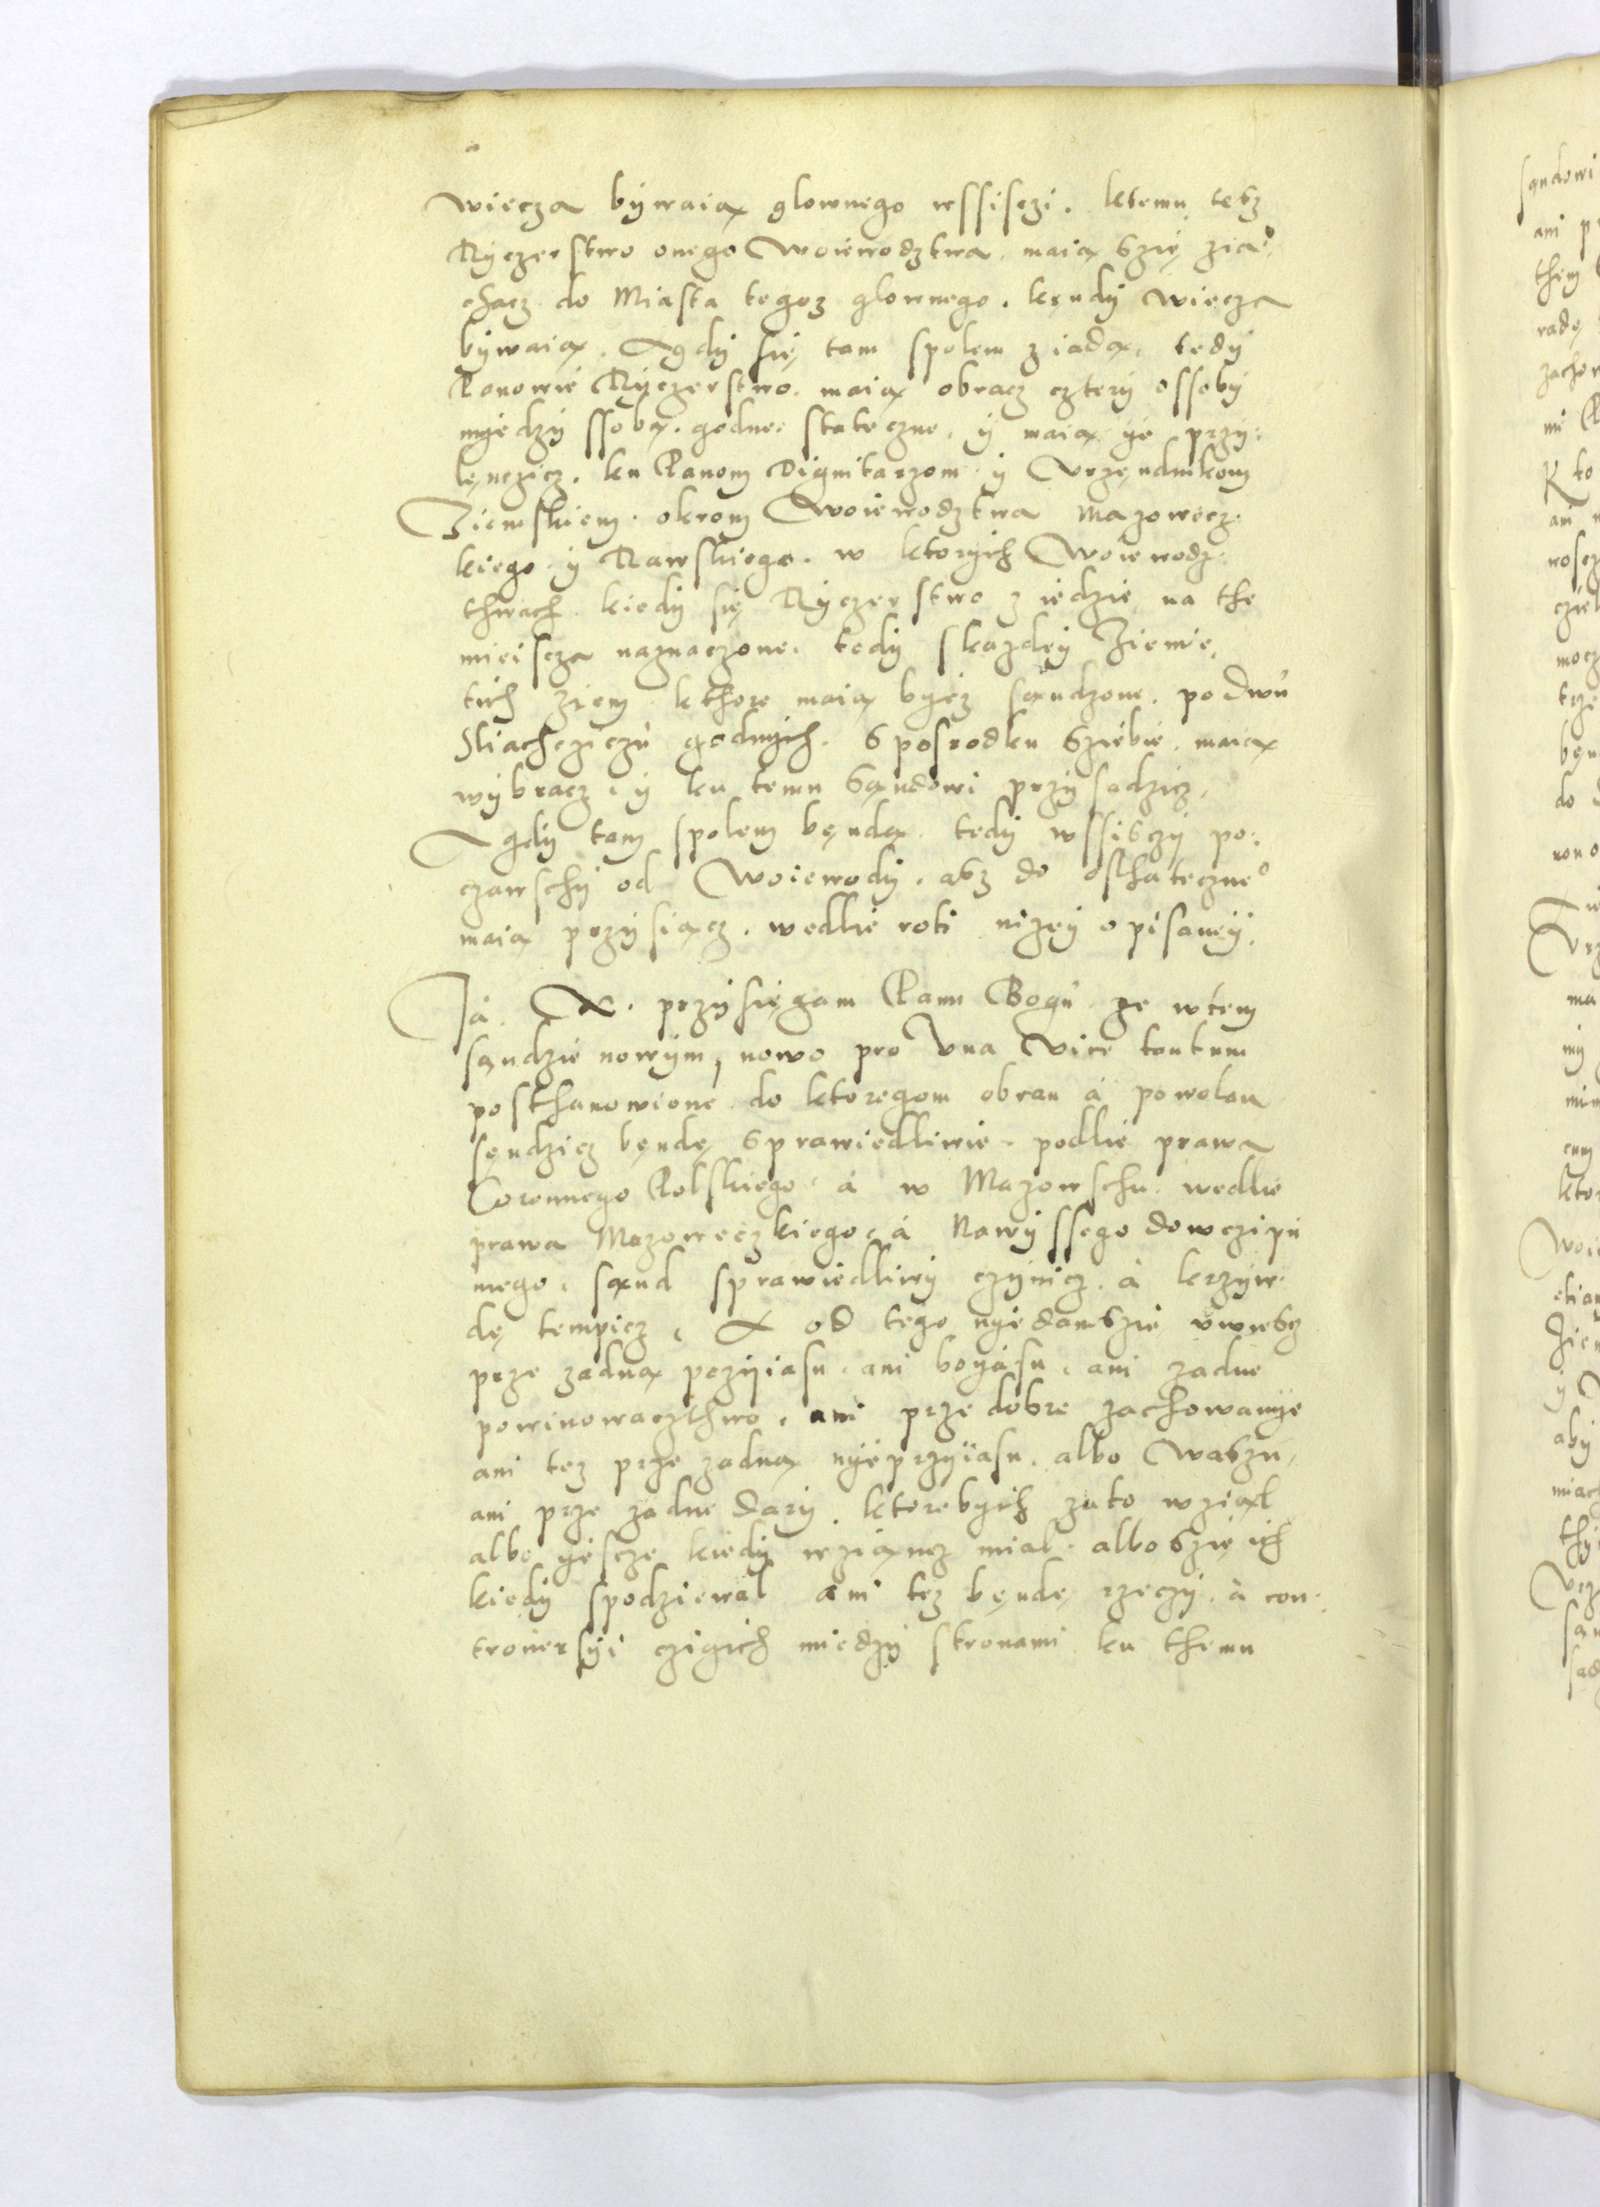 wiecza bywaią glownego wssisczi. ktemu tesz
Ryczerstwo onego Woiewodztwa. maią szię zia:
chacz do Miasta tegoz glownego. kędy wiecza
bywaią. A gdy się tam spolem ziadą, tedy
Panowie Ryczerstwo. maią obracz cztery ossoby
myedzy ssobą. godne. stateczne, y maią ye przy:
lęnczicz. ku Panom Dignitarzom y Vrzęndnikom
Ziemskiem. okrom Woiewodztwa Mazowecz:
kiego y Rawskiego. w ktorych Woiewodz:
thwach. kiedy się Ryczerstwo ziedzie na the
mieiscza naznaczone. tedy skazdey Ziemie,
tich Ziem kthore maią bycz sąndzone. po dwu
Sliachcziczu godnych. sposrodku sziebie. maią
wybracz. y ku temu sąndowi przysadzicz.
A gdy tam spolem bęndą. tedy wssisczy po:
czawschy od Woiewody. asz do osthateczne°
maią przysiącz. wedlie roti nizey opisaney.
Ja. N. przysięgam Panu Bogu ze wtem
sąndzie nowym, nowo pro Vna Vice tantum
posthanowione do ktoregom obran á powolan
sęndzicz będę, sprawiedliwie. podlie prawa
Coronnego Polskiego. á w Mazowschu. wedlie
prawa Mazoweczkiego. á Nawyssego dowczipu
mego. sąnd sprawiedliwy czynicz. á krzyw:
dę tempicz. A od tego nyedamszie uwiescz
prze zadną przyiasn. ani boyasn. ani zadne
powinowaczthwo. ani prze dobre zachowanye
ani tez prze zadną nyeprzyiasn. albo Waszn,
ani prze zadne dary. ktorebych zato wziąl
albo yescze kiedy wziąncz mial. albo szię ich
kiedy spodziewal ani tez będę rzeczy. á con:
trouersyi czigich miedzy stronami ku themu